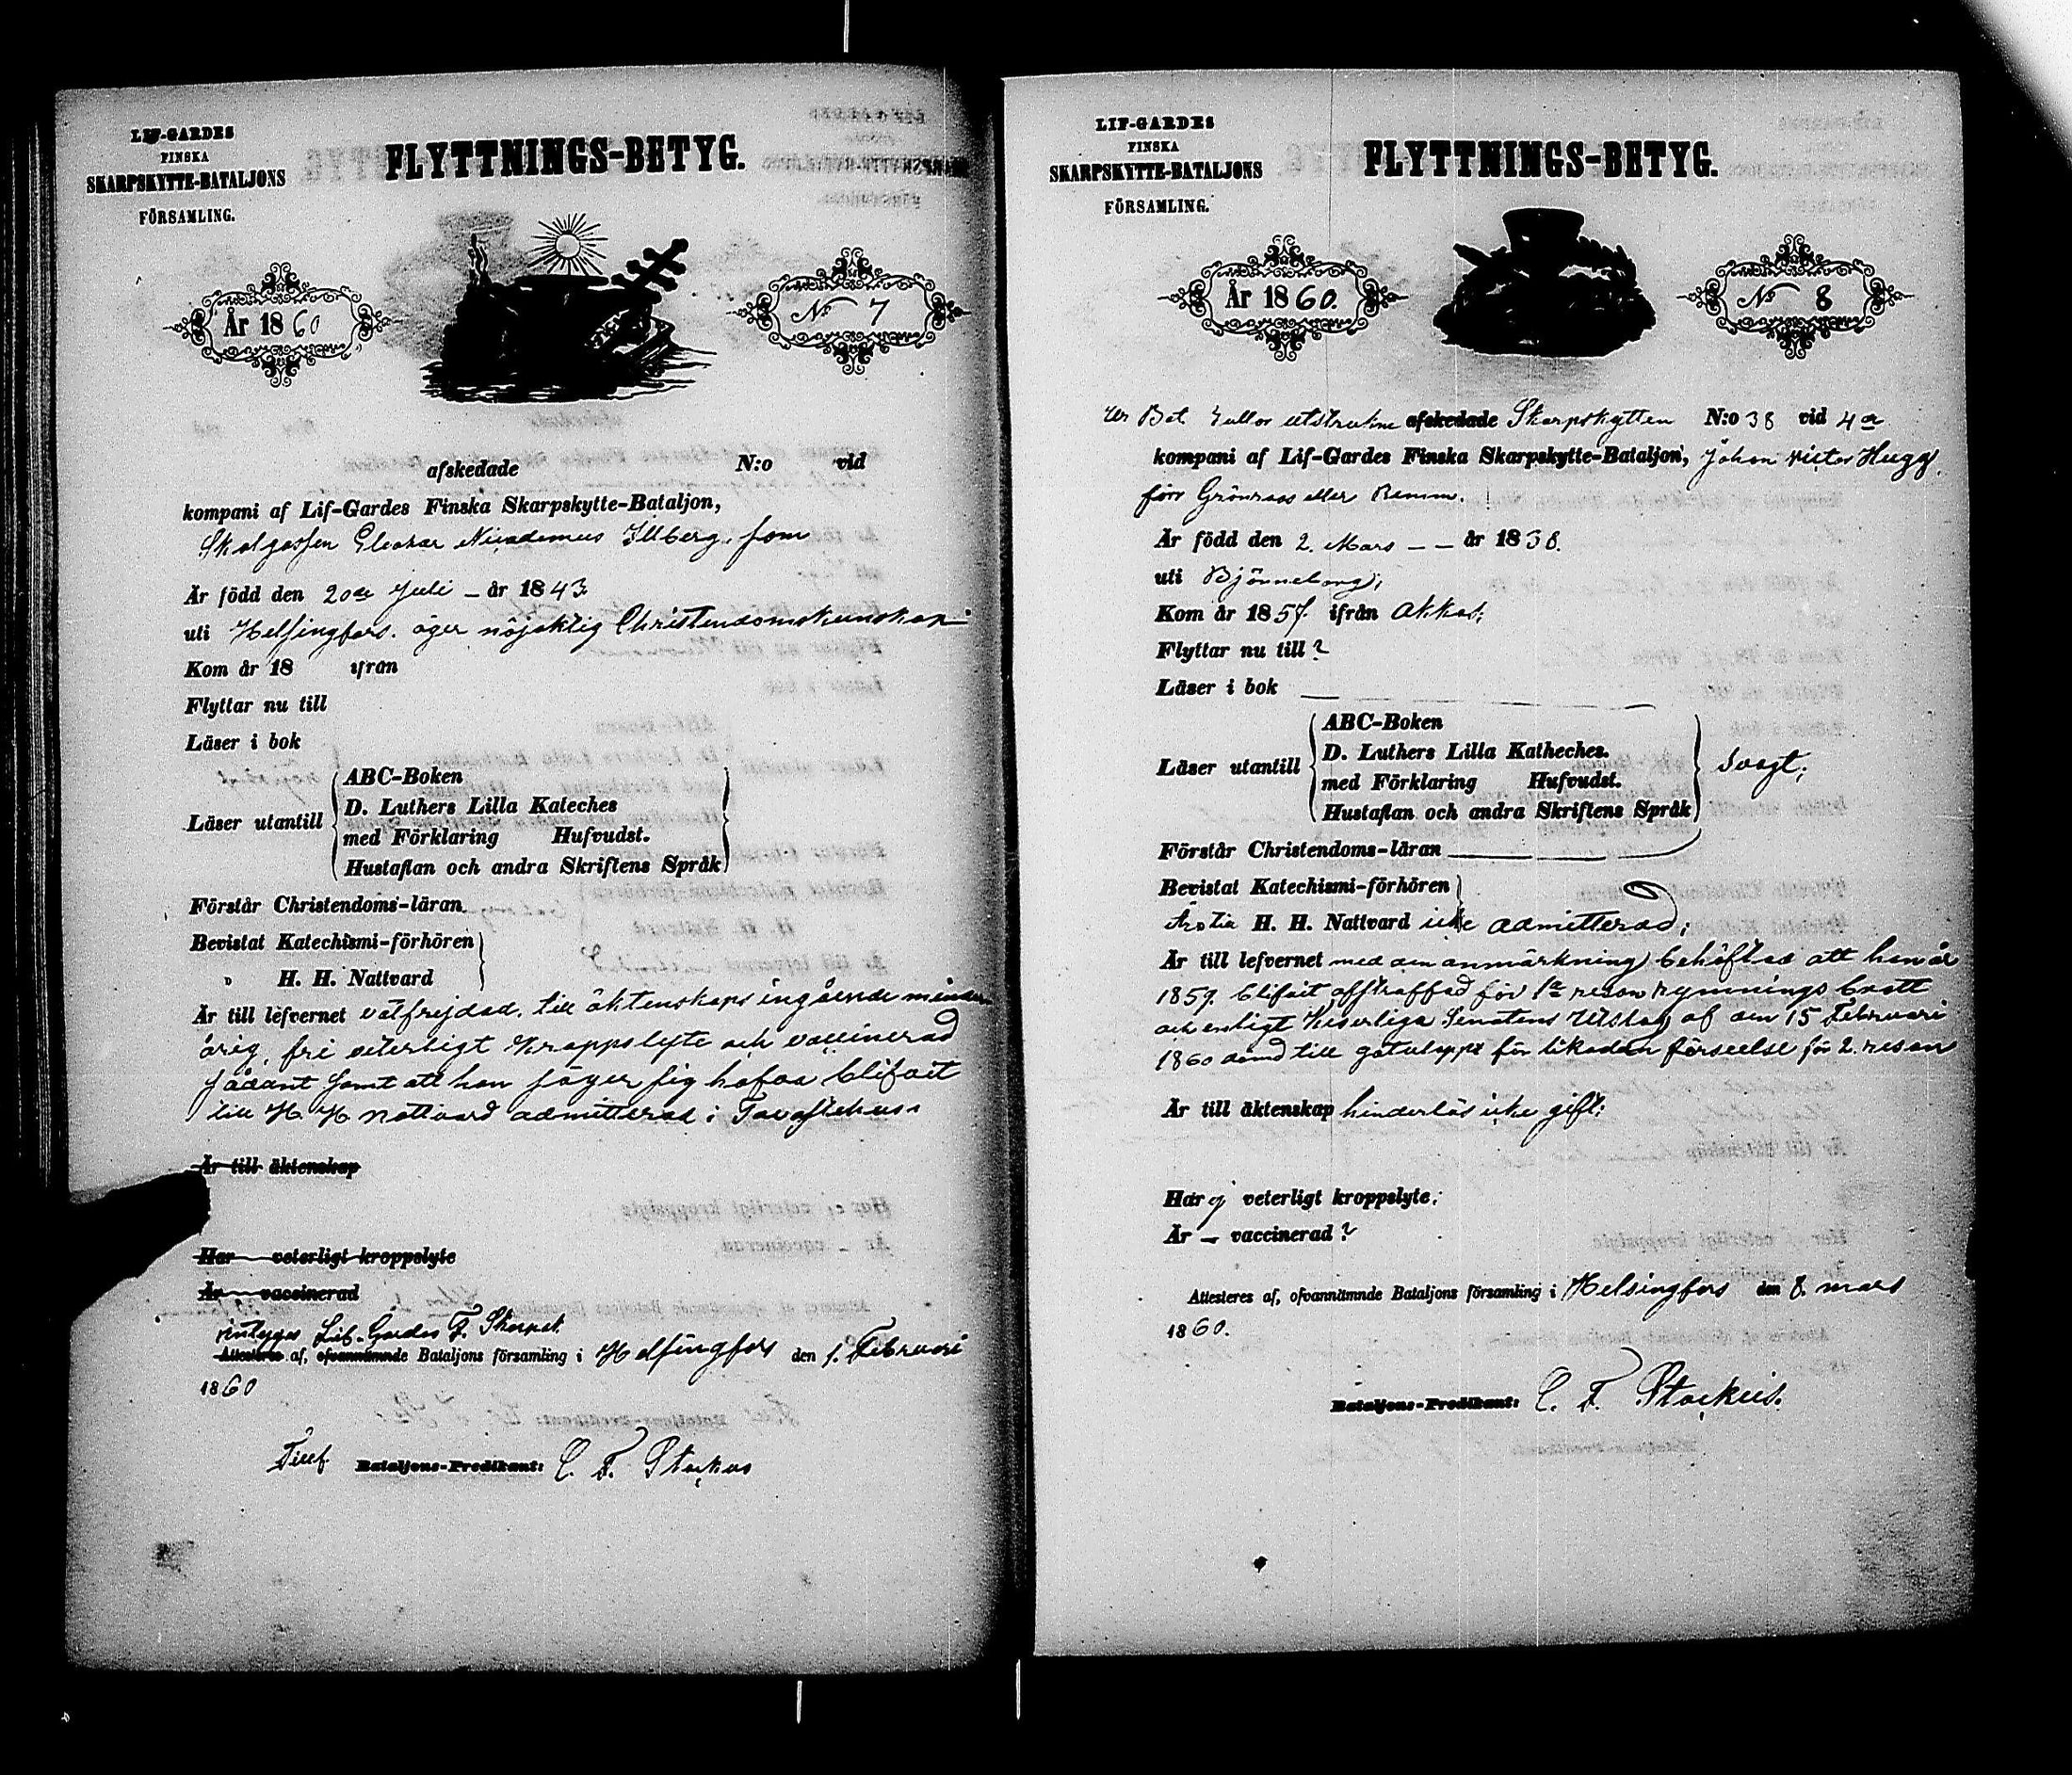 LIF-GARDES
FINSKA
SKARPSKYTTE-BATALJONS
FÖRSAMLING.
FLYTTNINGS-BETYG.
År 1860
No 7
afskedade N:o vid
kompani af Lif-Gardes Finska Skarpskytte-Bataljon,
Skolgossen Eleazar Nicodemus Illberg, som
Är född den 20de Juli – år 1843
uti Helsingfors. äger nöjaktig Christendomskunskap
Kom år 18 ifrån
Flyttar nu till
Läser i bok
Läser utantill
ABC-Boken
D. Luthers Lilla Kateches
med Förklaring Hufvudst.
Hustaflan och andra Skriftens Språk
Förstår Christendoms-läran
Bevistat Katechismi-förhören
„ H. H. Nattvard
Är till lefvernet välfrejdad, till äktenskaps ingående minder
årig, fri veterligt kroppslyte och vaccinerad
sådant samt att han säger sig hafva blifvit
till H. H. Nattvard admitterad i Tavastehus.
Är till äktenskap
Har veterligt kroppslyte
Är vaccinerad
intygas Lif-Gardes F. Skarpsk.
Attesteras af, ofvannämnde Bataljons församling i Helsingfors den 1. Februari
1860
Bataljons-Predikant: C. F. Stackus
LIF-GARDES
FINSKA
SKARPSKYTTE-BATALJONS
FÖRSAMLING.
FLYTTNINGS-BETYG.
År 1860.
No 8
Ur Bat. rullor utstrukne afskedade Skarpskytten N:o 38 vid 4de
kompani af Lif-Gardes Finska Skarpskytte-Bataljon, Johan Victor Hugg,
förr Grönroos eller Remm.
Är född den 2. Mars – – år 1838.
uti Björneborg;
Kom år 1857. ifrån Akkas;
Flyttar nu till ?
Läser i bok
Läser utantill
ABC-Boken
D. Luthers Lilla Katheches.
med Förklaring Hufvudst.
Hustaflan och andra Skriftens Språk
svagt;
Förstår Christendoms-läran
Bevistat Katechismi-förhören
H. H. Nattvard icke admitterad;
Är till lefvernet med den anmärkning behäftad att han år
1859. blifvit afstraffad för 1a resan rymnings brott
och enligt Keserliga Senatens Utslag af den 15 Februari
1860 dömd till gatulopp för likadan förseelse för 2. resan
Är till äktenskap hinderlös icke gift;
Har ej veterligt kroppslyte;
Är – vaccinerad ?
Attesteres af, ofvannämnde Bataljons församling i Helsingfors den 8. mars
1860.
Bataljons-Predikant: C. F. Stackus.